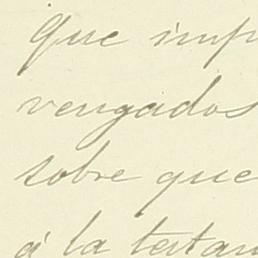 que imp
vengados
sobre que
á la testam